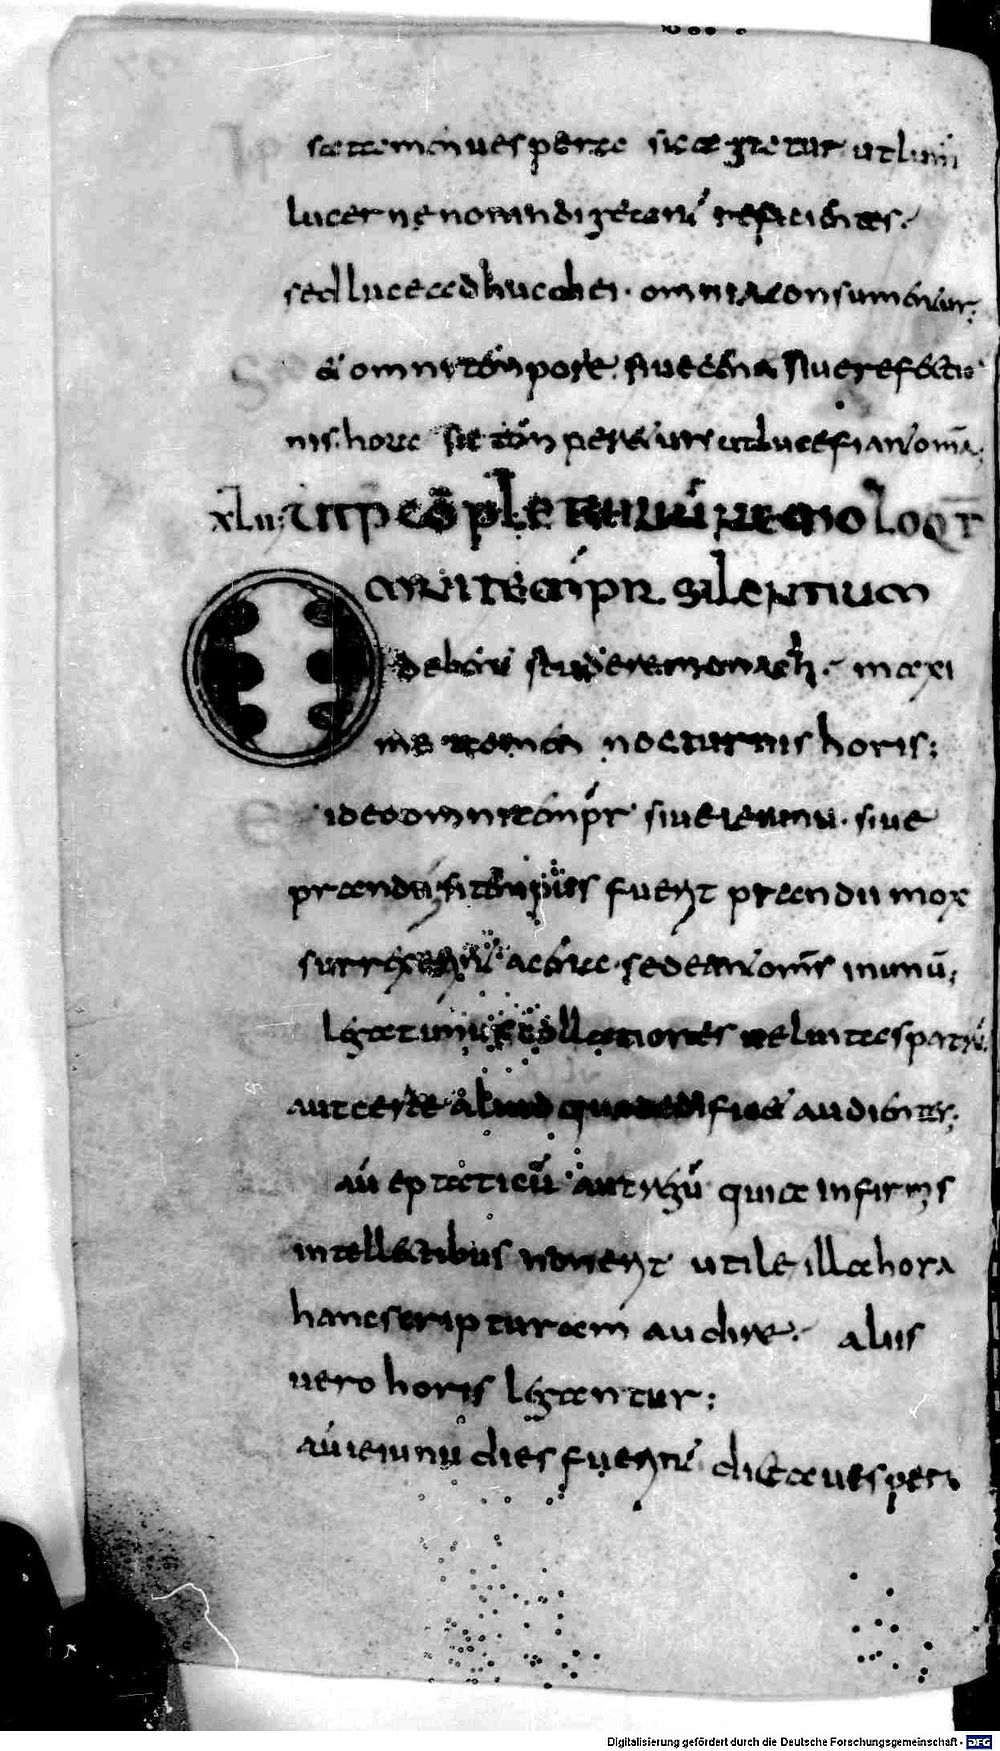 sa tamen uespera sic agatur ut lum̄
lucerne non indigeant reficientes.
sed luce adhuc diei. omnia consumentur;
et omni tempore. siue cena siue refectio
nis. hora sic temperetur ut luce fiant om̄a;
xlii; ut p̄ cōpletoriū nemo loqt̄
Omni tempr silentium
debent studere monach. maxi
me tamen nocturnis horis;
ideo omni tempr siue ieiunii. siue
prandii si tempus fuert prandii mox
surrexernt a cena. sedeant om̄s inunū;
legat unus collationes uel uitas patrū.
aut certe aliud quod edificet audientes;
aū eptaticū aut regū quia infirmis
intellectibus non ert utile illa hora
hanc scripturam audire. aliis
uero horis legantur;
aū ieiunii dies fuernt dicta uespera
Digitalisierung gefördert durch die Deutsche Forschungsgemeinschaft - DFG